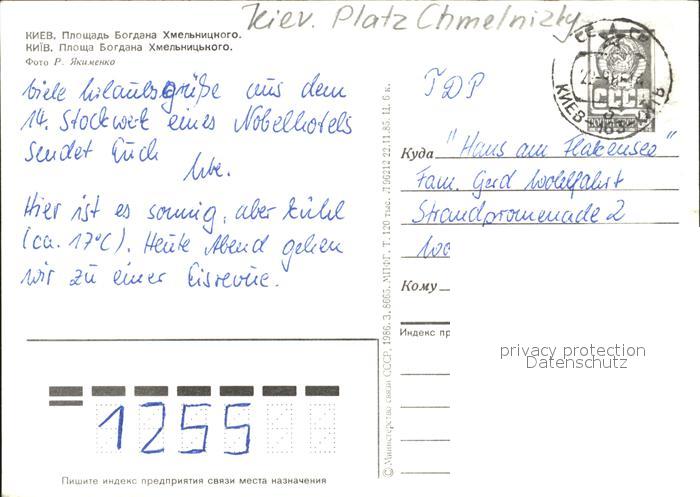 Kiev. Platz Chmelnizky
КИЕВ. Площадь Богдана Хмельницкого.
КИЇВ. Площа Богдана Хмельницького.
Фото Р. Якименко
Viele Urlaubsgrüße aus dem
14. Stockwerk eines Nobelhotels
sendet Euch
Uwe.
Hier ist es sonnig, aber kühl
(ca. 17°C). Heute Abend gehen
wir zu einer Eisrevue.
1255
Пишите индекс предприятия связи места назначения
© Министерство связи СССР, 1986. З. 8665. МПФГ. Т. 120 тыс. Л 96212 22.11.85. Ц. 6 к.
СССР
КИЕВ
ГДР
Куда "Haus am Flakensee"
Fam. Gerd Wohlfahrt
Strandpromenade 2
Wo
Кому
Индекс пр
privacy protection
Datenschutz